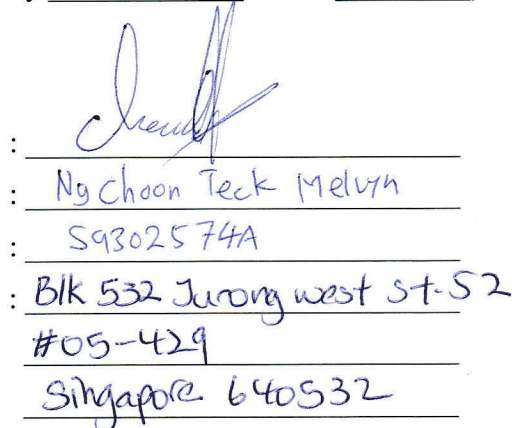 :
: Ng Choon Teck Melvyn
: S9302574A
: Blk 532 Jurong west st-52
#05-429
Singapore 640532